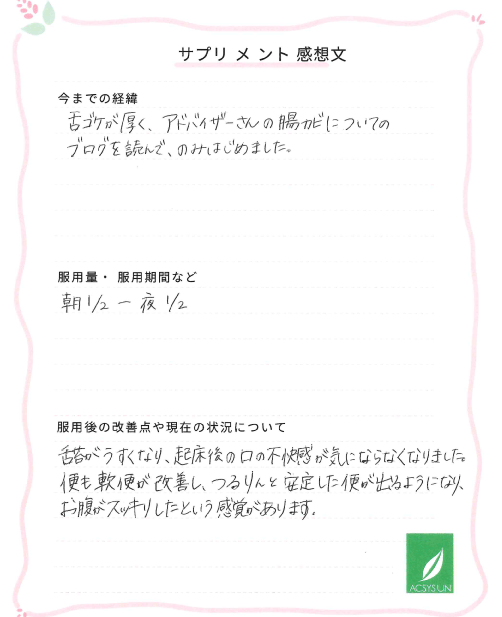 サプリメント 感想文
今までの経緯
舌ゴケが厚く、アドバイザーさんの腸カビについての
ブログを読んで、のみはじめました。
服用量・服用期間など
朝 1/2 ー 夜 1/2
服用後の改善点や現在の状況について
舌苔がうすくなり、起床後の口の不快感が気にならなくなりました。
便も軟便が改善し、つるりんと安定した便が出るようになり、
お腹がスッキリしたという感覚があります。
ACSYSUN